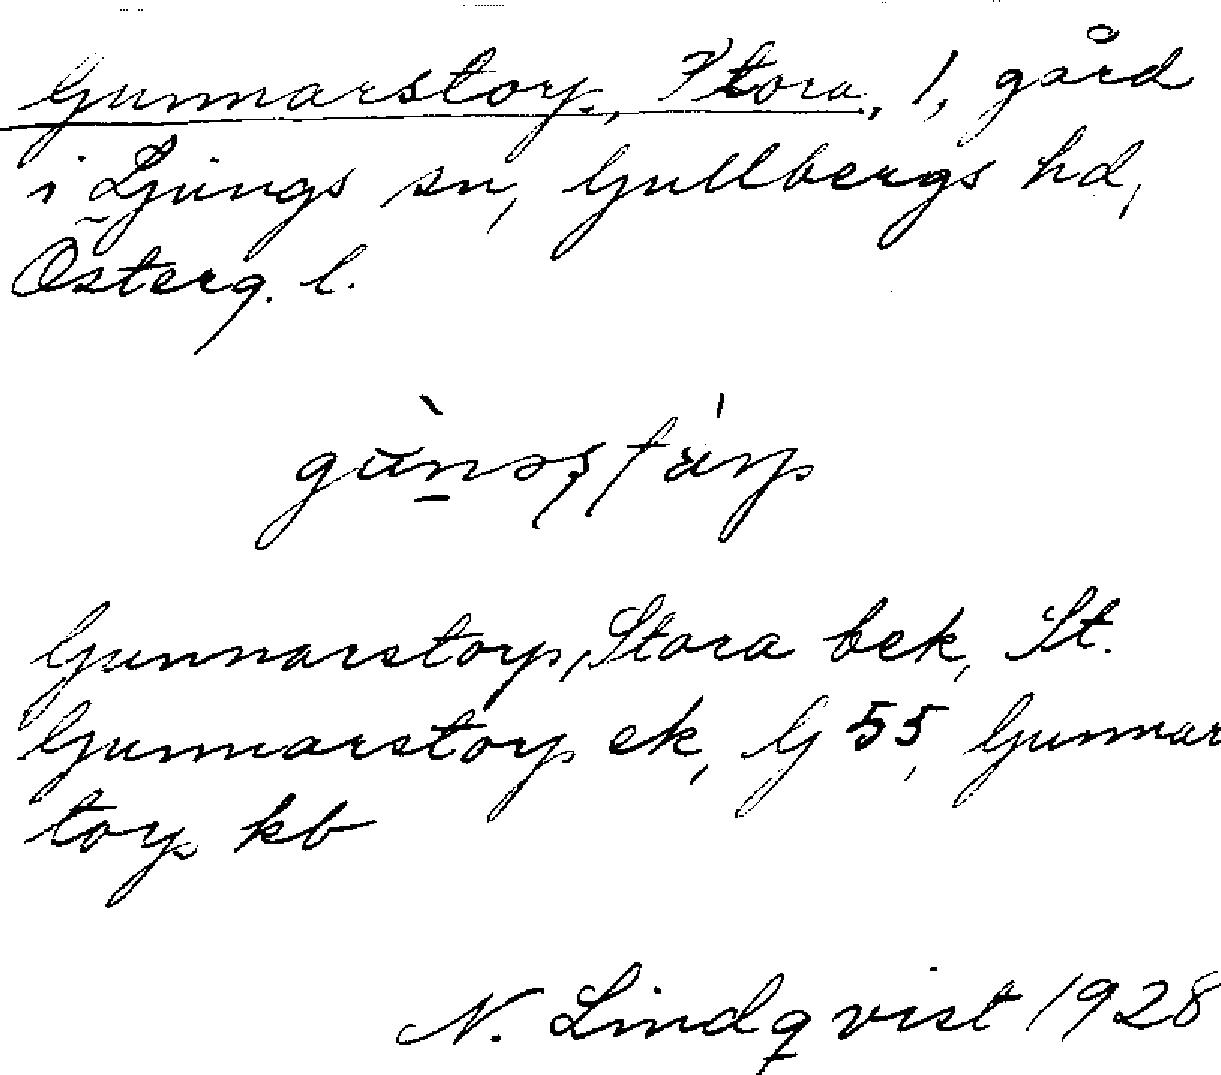 Gunnarstorp, Stora, 1, gård
i Ljungs sn, Gullbergs hd,
Österg. l.
Gunnarstorp, Stora bek, St.
Gunnarstorp ek, G 55, Gunnar
torp kb
N. Lindqvist 1928